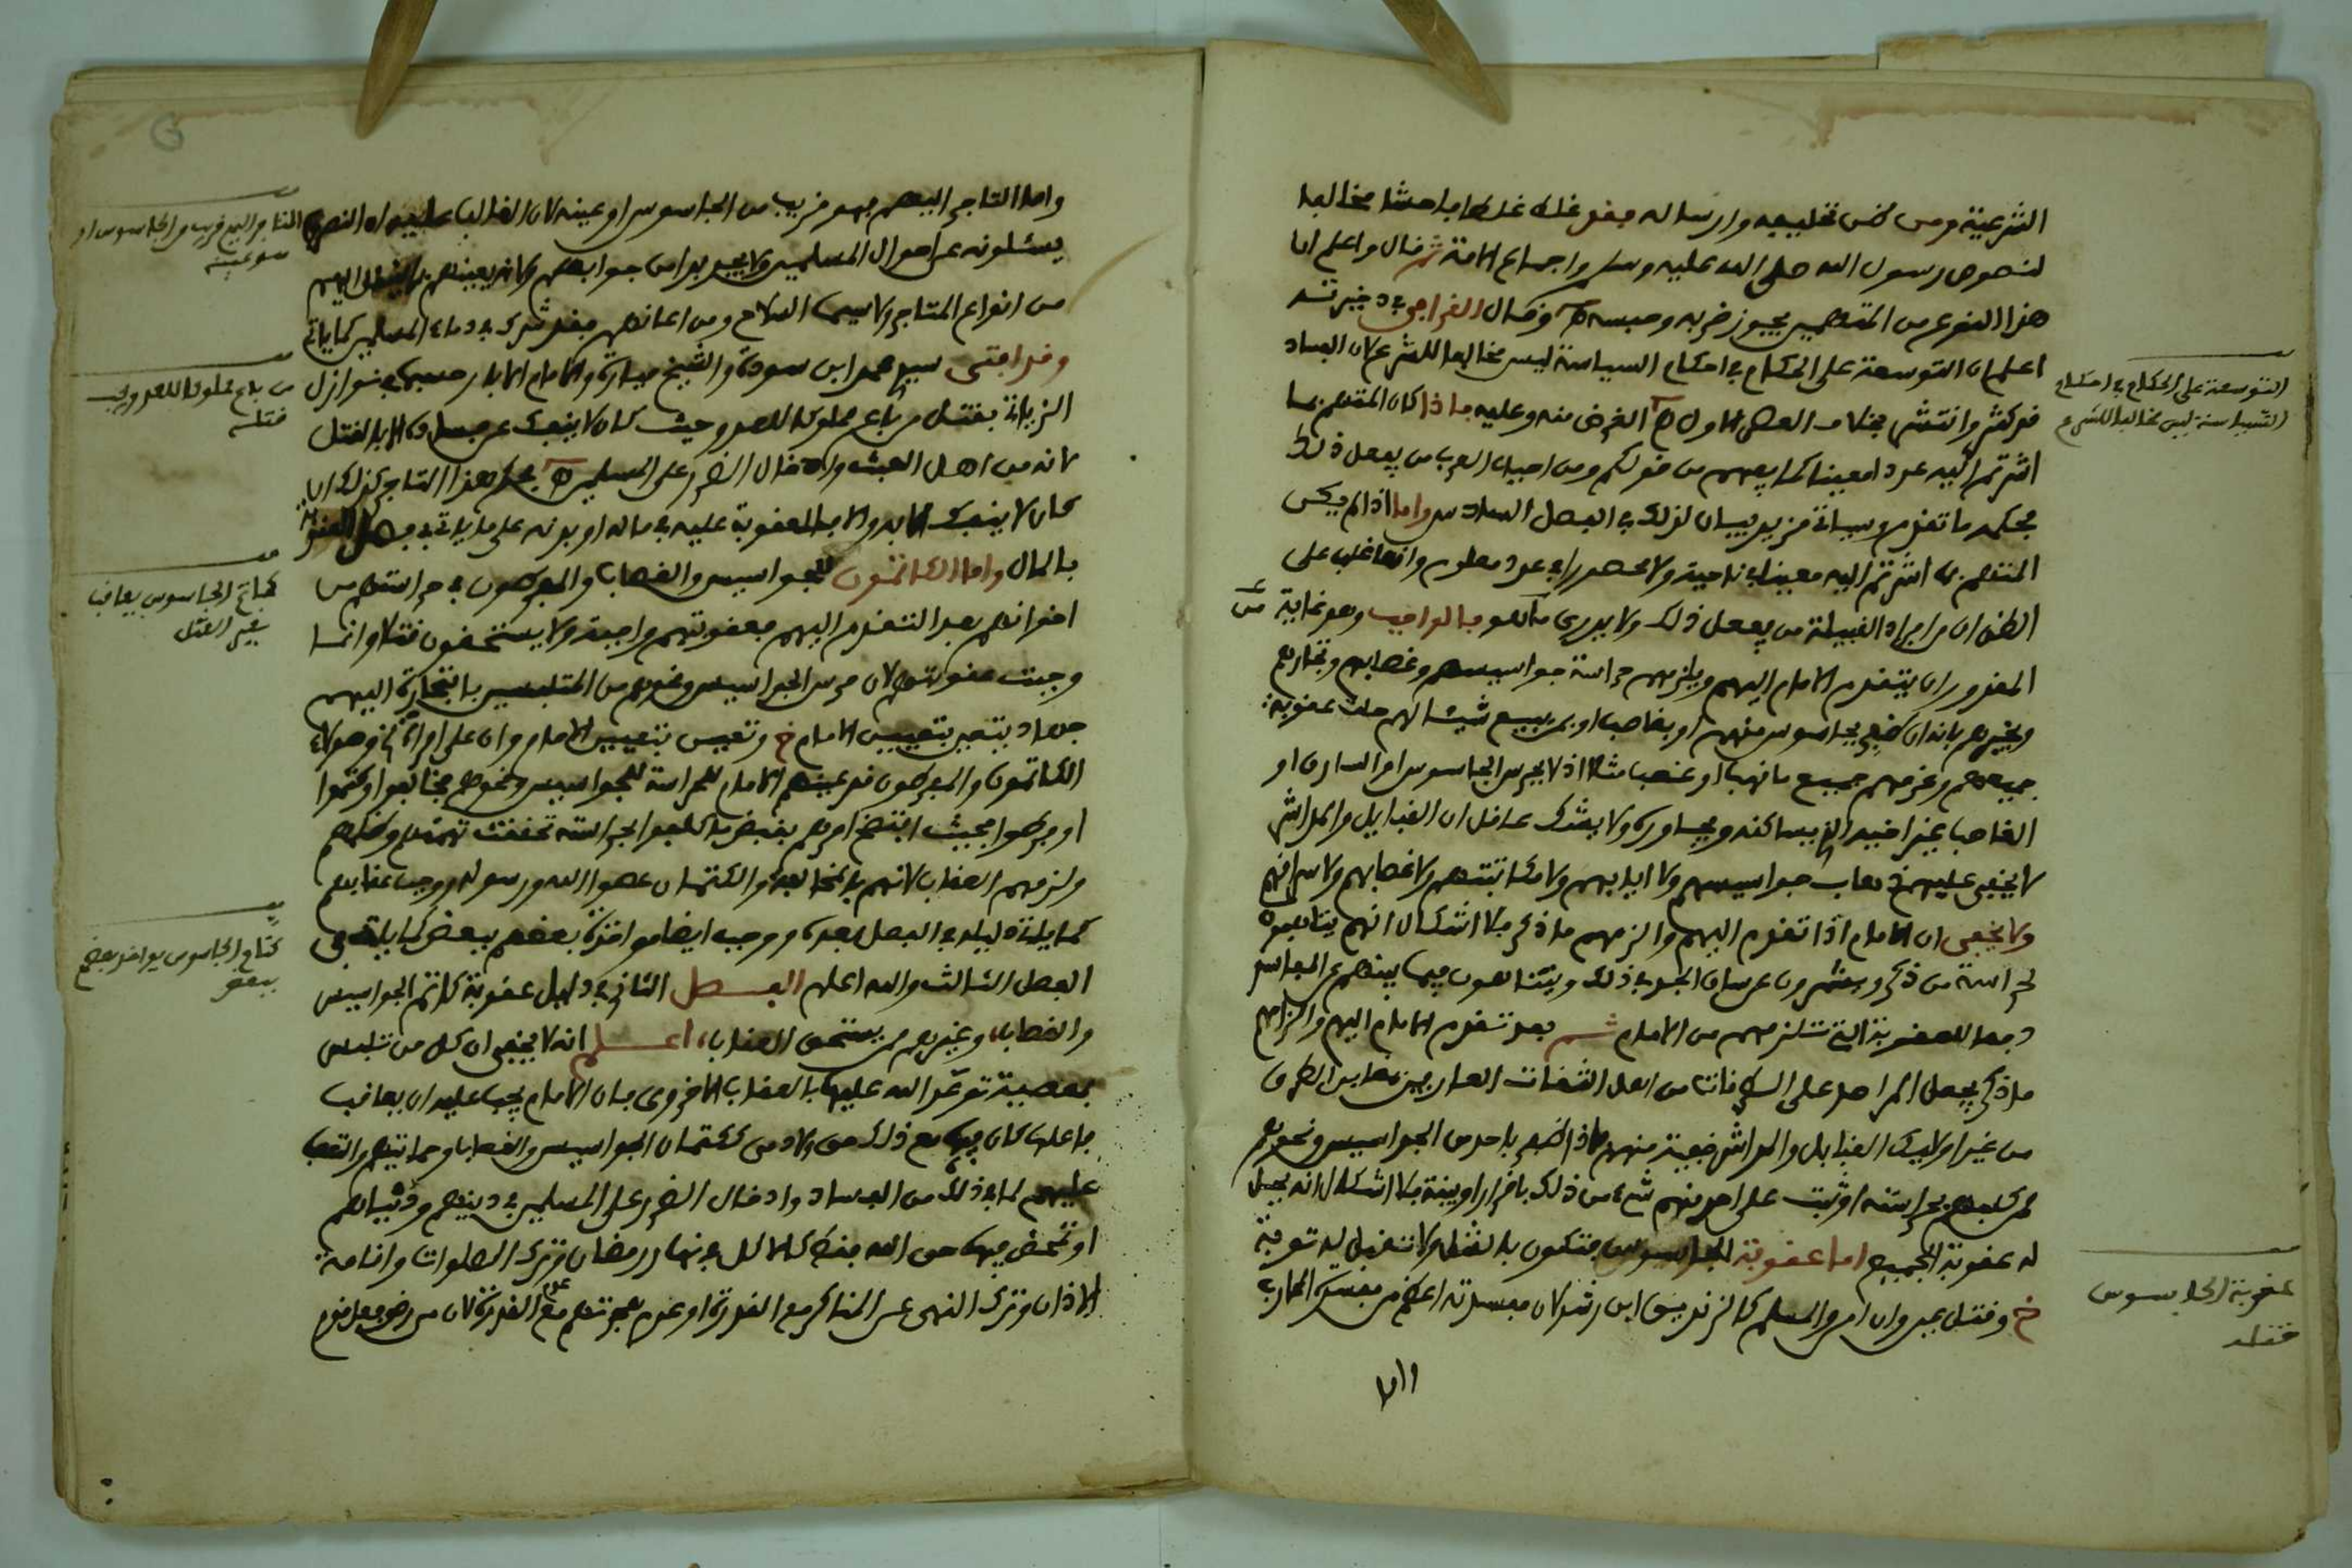 الشرعية ومن نص تخليده وارساله فقد غلط غلطا فاحشا مخالفا
لنصوص رسول الله صلى الله عليه وسلم واجماع الامة ثم قال واعلم ان
هذا النوع من المتهمين يجوز ضربه وحبسه اهـ وقال القرافي في ذخيرته
اعلم ان التوسعة على الحكام في احكام السياسة ليس مخالفا للشرع لان الفساد
قد كثر وانتشر بخلاف العصر الاول اهـ الغرض منه وعليه فاذا كان المتهم بما
اشرتم اليه عددا معينا كما يفهم من قولكم ومن اجياد العرب من يفعل ذلك
فحكمه ما تقدم وسياتي مزيد بيان لذلك في الفصل السادس واما اذا لم يكن
المتهم بما اشرتم اليه معينا في ناحية ولا محصورا في عدد معلوم وانما غلب على
الظن ان من افراد القبيلة من يفعل ذلك ولا يدرى ما هو فالواجب وهو غاية
المقدور ان يتقدم الامام اليهم ويلزمهم حراسة جواسيسهم وغصابهم وتجارهم
ويخبرهم بانه ان ظفر بجاسوس منهم او بغاصب او بمن يبيع شيئا لهم حلت عقوبة
جميعهم وغرمهم جميع ما نهب او غصب مثلا اذ لا يحرس الجاسوس او السارق او
الغاصب غير اخيه الذي يساكنه ويجاوره ولا يشك عاقل ان القبايل والمداشر
لا يخفى عليهم ذهاب جواسيسهم ولا ايابهم ولا مكاتبتهم ولا غصابهم ولا سراقهم
ولا يخفى ان الامام اذا تقدم اليهم والزمهم ما ذكر فلا اشكال انهم يتاهبون
لحراسة من ذكر ويشمرون عن ساق الجد في ذلك ويتناهون فيما بينهم عن المفاسد
دفعا للعقوبة التي تلزمهم من الامام ثم بعد تقدم الامام اليهم والزامهم
ما ذكر يجعل المراصد على الطرقات من اهل الثقات العارفين بمعابر الطرق
من غير اولايك القبايل والمداشر خفية منهم فاذا ظفر باحد من الجواسيس ونحوهم
ممن كلفهم بحراسته او ثبت على احد منهم شيء من ذلك باقرار او بينة فلا اشكال انه يحل
له عقوبة الجميع اما عقوبة الجاسوس فتكون بالقتل ولا تقبل له توبة
خ وقتل عين وان امن والمسلم كالزنديق ابن رشد لان مفسدته اعظم من مفسدة المحارب
التوسعة على الحكام في احكام
السياسة ليس مخالفا للشرع
عقوبة الجاسوس
قتله
واما التاجر اليهم فهو قريب من الجاسوس او عينه لان الغالب عليه ان النصارى
يسئلونه عن احوال المسلمين ولا يجد بدا من جوابهم ولانه يعينهم بما ينقل اليهم
من انواع المتاجر ولاسيما السلاح ومن اعانهم فقد شرك في دماء المسلمين كما ياتي
وقد افتى سيدي محمد ابن سودة والشيخ ميارة والامام الابار حسبما في نوازل
الزياتي بقتل من باع مملوكه للعدو وحيث كان لا ينفك عن فعله الا بالقتل
لانه من اهل العيث وادخال الضرر على المسلمين اهـ فحكم هذا التاجر كذلك ان
كان لا ينفك الا به والا فالعقوبة عليه في ماله او بدنه على ما ياتي في فصل العقوبة
بالمال واما الكاتمون للجواسيس والغصاب والمفرطون في حراستهم من
اخوانهم بعد التقدم اليهم فعقوبتهم واجبة ولا يستحقون قتلا وانما
وجبت عقوبتهم لان حرس الجواسيس وغيرهم من المتلبسين بالتجارة اليهم
جهاد يتعين بتعيين الامام خ وتعين بتعيين الامام وان على امراة خ وهولاء
الكاتمون والمفرطون قد عينهم الامام للحراسة للجواسيس ونحوهم فخالفوا وكتموا
او فرطوا بحيث افتضح امرهم بقبض ما كلفوا بحراسته تحققت تهمتهم وظلمهم
ولزمهم العقاب لانهم بالمخالفة والكتمان عصوا الله ورسوله ووجب عقابهم
كما ياتي دليله في الفصل بعده ووجب ايضا مواخذة بعضهم ببعض كما ياتي في
الفصل الثالث والله اعلم الفصل الثاني في دليل عقوبة كاتم الجواسيس
والغصاب وغيرهم ممن يستحق العقاب اعلم انه لا يخفى ان كل من تلبس
بمعصية توعد الله عليها بالعقاب الاخروي فان الامام يجب عليه ان يعاقب
فاعلها كان فيها مع ذلك حق لادمي ككتمان الجواسيس والغصاب وحمايتهم والتعصب
عليهم لما في ذلك من الفساد وادخال الضرر على المسلمين في دينهم ودنياهم
او تمحض فيها حق الله فقط كالاكل في نهار رمضان وترك الصلوات واقامة
الاذان وترك النهي عن المناكر مع القدرة او عدم هجرتهم مع عدم القدرة لان من رضي بفعل قوم
التاجر اليهم قريب من الجاسوس او
هو عينه
من باع مملوكه للعدو يجب
قتله
كاتم الجاسوس يعاقب
بغير القتل
كتام الجاسوس يواخذ بعضهم
ببعض